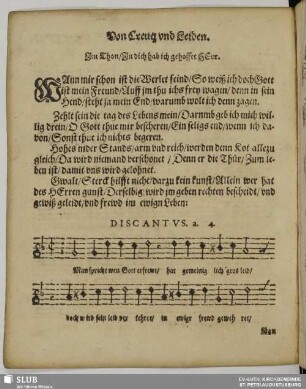 Von Creutz vnd Leiden.
Im Thon/ In dich hab ich gehoffet HErr.
WAnn mir schon ist die Werlet feind/ So weiß ich doch Gott
ist mein Freund/ Auff jm thu ichs frey wagen/ denn in sein
Hend/ steht ja mein End/ warumb wolt ich denn zagen.
Zehlt sein die tag des Lebens mein/ Darumb geb ich mich wil-
lig drein/ O Gott thue mir bescheren/ Ein seligs end/ wenn ich da-
von/ Sonst thue ich nichts begeren.
Hohes nider Stands/ arm vnd reich/ werden denn Kot allezu
gleich/ Da wird niemand verschonet/ Denn er die Thür/ Zum le-
ben ist/ damit vns wird gelohnet.
Gwalt/ Sterck hilfft nicht/ darzu kein kunst/ Allein wer hat
des HErren gunst/ Derselbig wird jm geben rechten bescheidt/ vnd
gewiß geleidt/ vnd frewd im ewign Leben:
DISCANTVS. 2. 4.
Man spricht wen Gott erfrewt/ hat gemeinig lich gros leid/
doch wird sein leid ver kehret/ in ewige freud geweh ret/
Man
SLUB
Wir führen Wissen.
EV.-LUTH. KIRCHGEMEINDE
ST. PETRI AUGUSTUSBURG